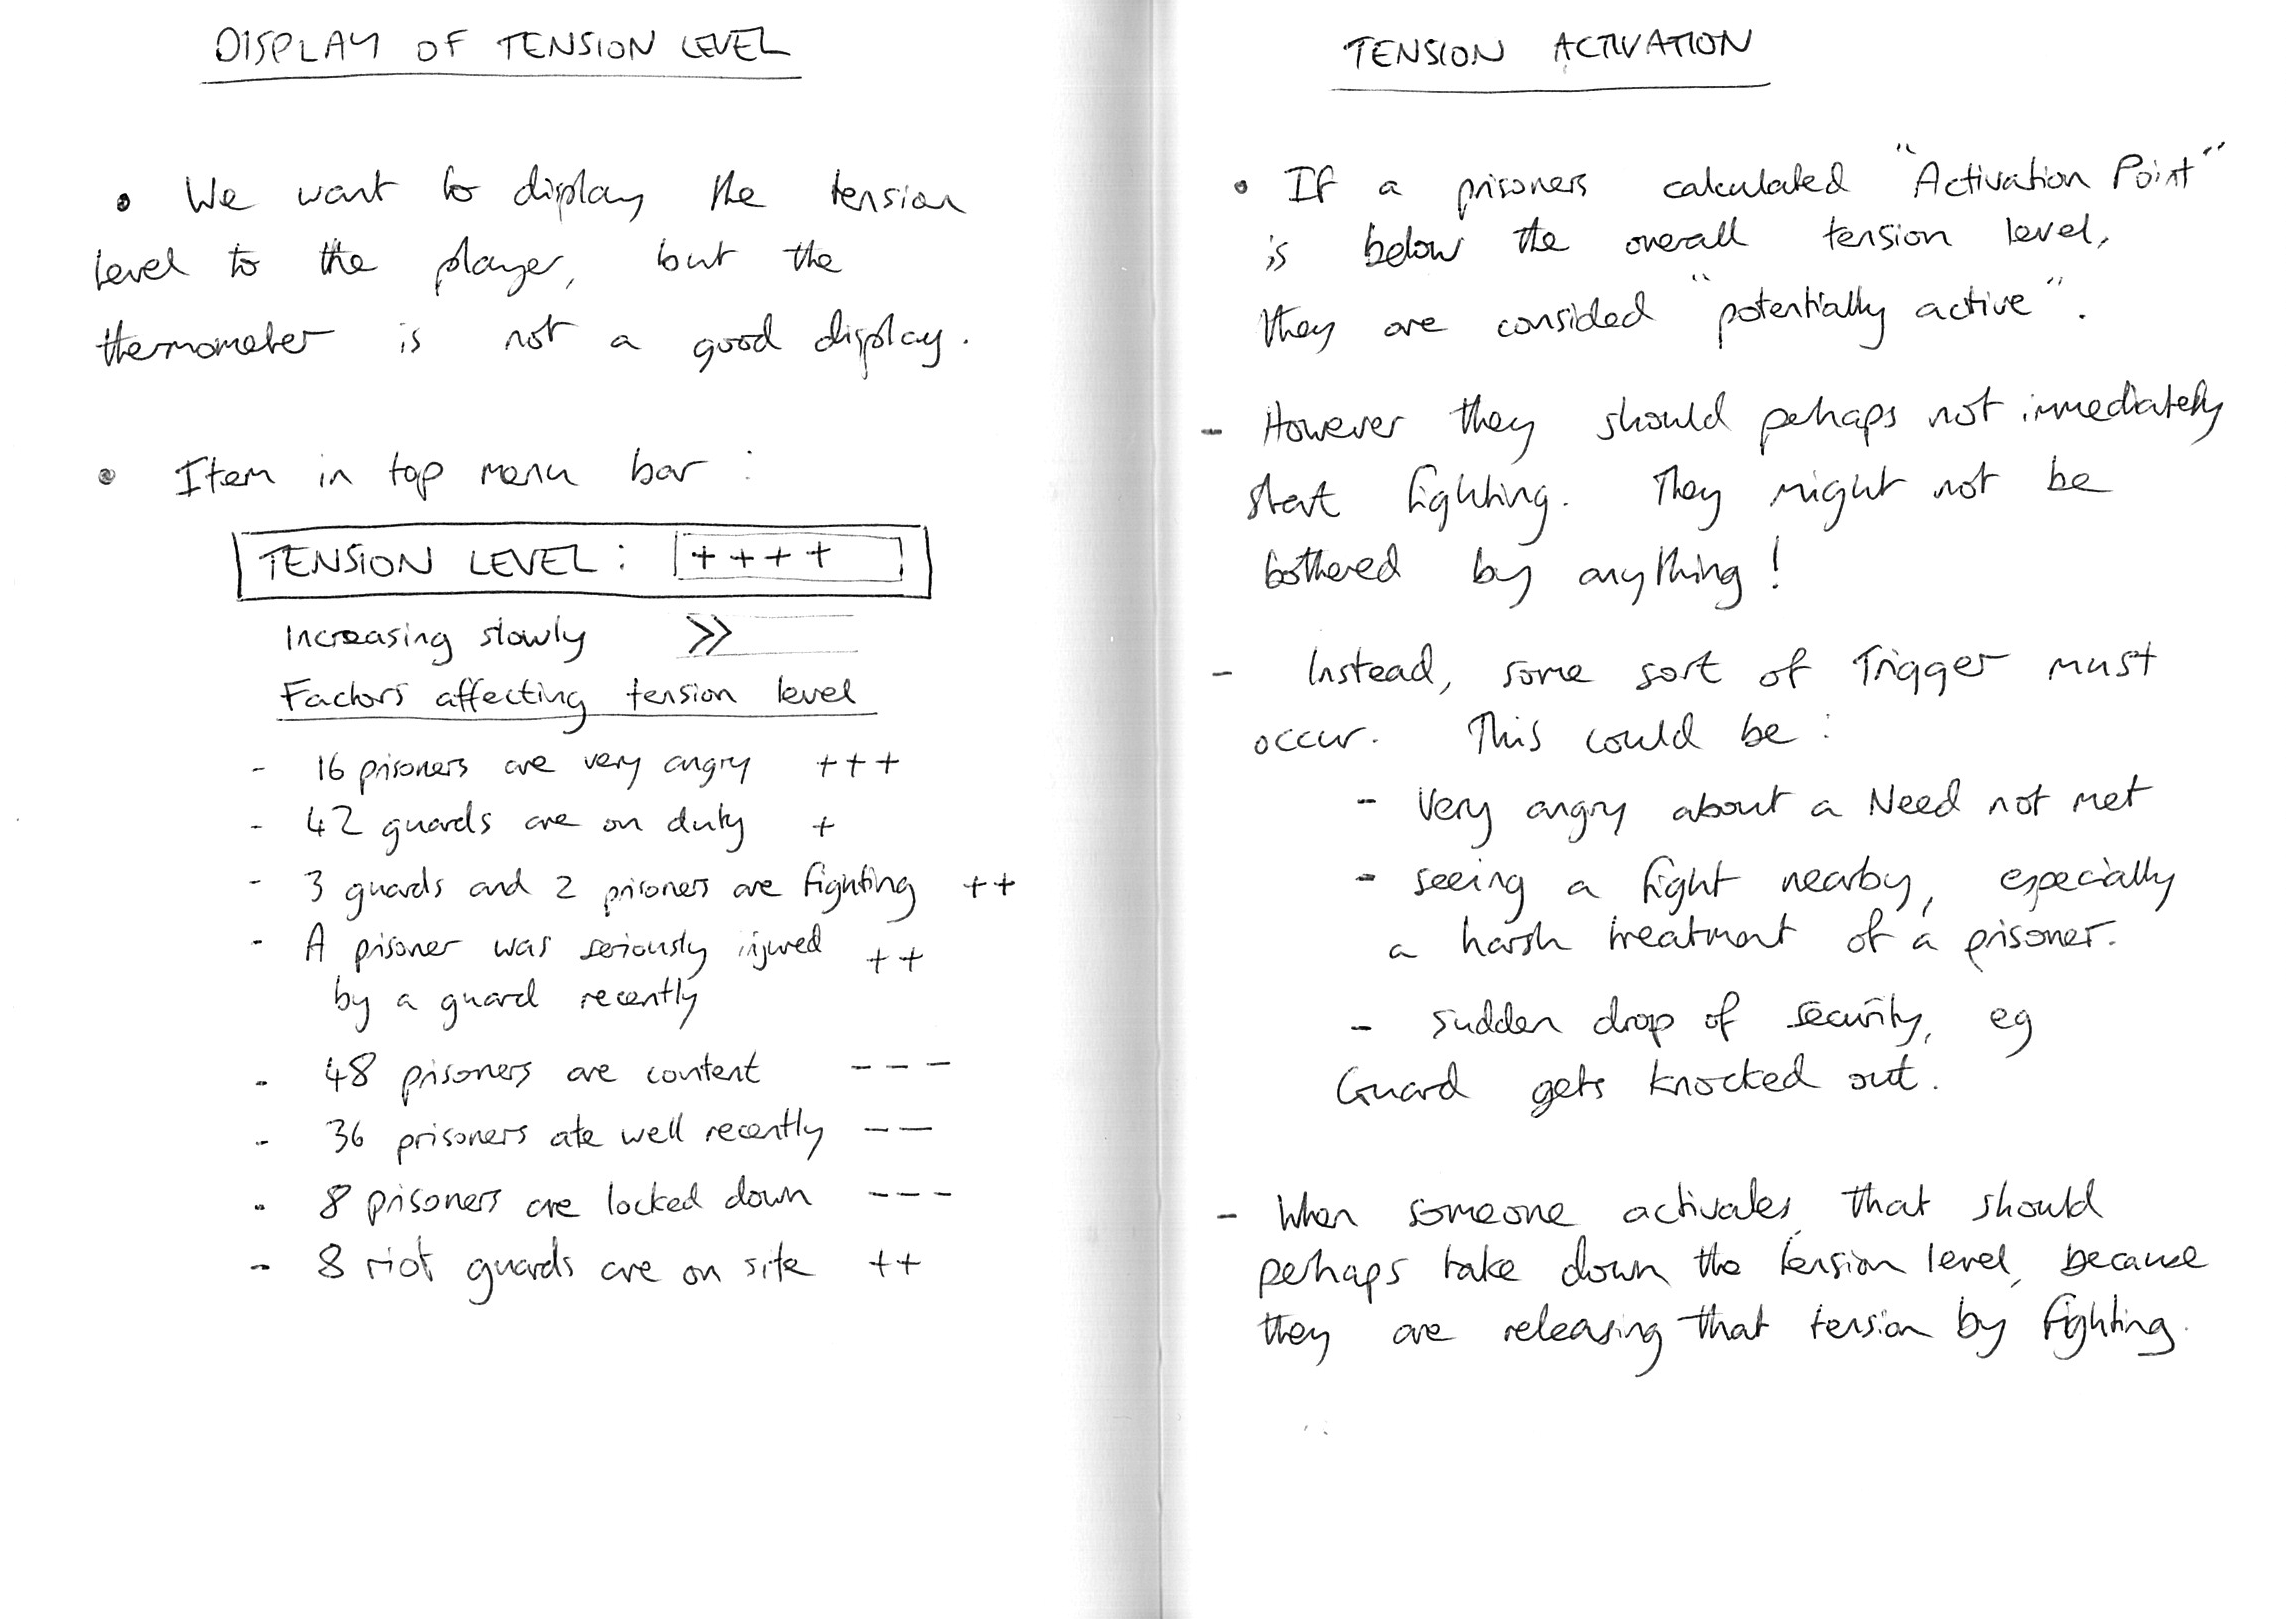 DISPLAY OF TENSION LEVEL
• We want to display the tension
level to the player, but the
thermometer is not a good display.
• Item in top menu bar :
TENSION LEVEL : ++++
Increasing slowly >>
Factors affecting tension level
- 16 prisoners are very angry +++
- 42 guards are on duty +
- 3 guards and 2 prisoners are fighting ++
- A prisoner was seriously injured ++
by a guard recently
- 48 prisoners are content ---
- 36 prisoners ate well recently --
- 8 prisoners are locked down ---
- 8 riot guards are on site ++
TENSION ACTIVATION
• If a prisoners calculated "Activation Point"
is below the overall tension level,
they are consided "potentially active".
- However they should pehaps not immediately
start fighting. They might not be
bothered by anything!
- Instead, some sort of Trigger must
occur. This could be :
- Very angry about a Need not met
- seeing a fight nearby, especially
a harsh treatment of a prisoner.
- sudden drop of security, eg
Guard gets knocked out.
- When someone activates, that should
pehaps take down the tension level, because
they are releasing that tension by fighting.